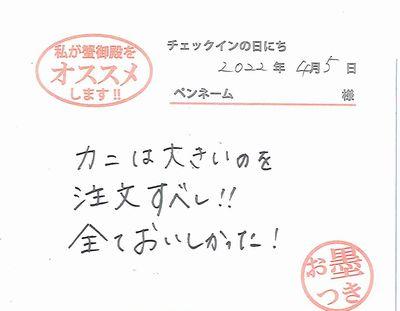 私が蟹御殿を
オススメ
します!!
チェックインの日にち
2022年4月5日
ペンネーム 様
カニは大きいのを
注文すべし!!
全ておいしかった!
お墨
つき